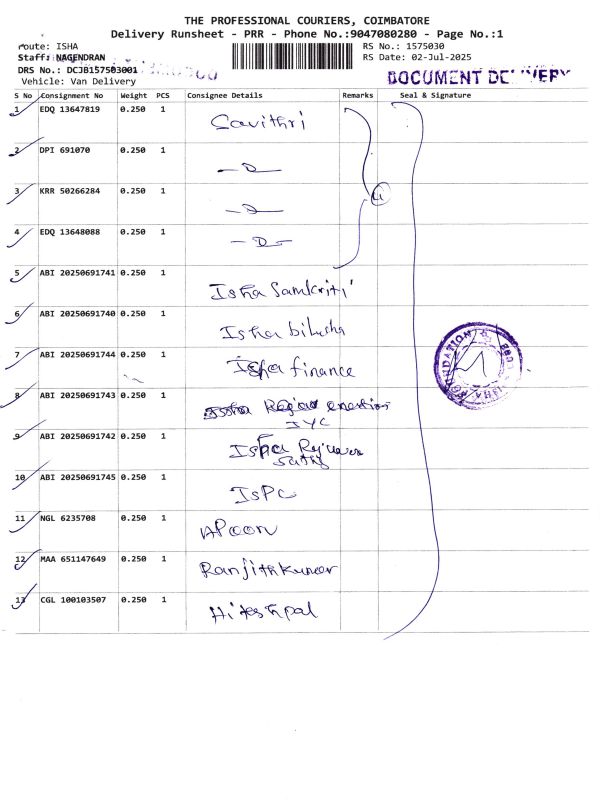 THE PROFESSIONAL COURIERS, COIMBATORE
Delivery Runsheet - PRR - Phone No.:9047080280 - Page No.:1
route: ISHA
RS No.: 1575030
Staff: NAGENDRAN
RS Date: 02-Jul-2025
DRS No.: DCJB157503001
DOCUMENT DELIVERY
Vehicle: Van Delivery
S No Consignment No Weight PCS Consignee Details Remarks Seal & Signature
1 EDQ 13647819 0.250 1 Savithri
2 DPI 691070 0.250 1 — D —
3 KRR 50266284 0.250 1 — D —
4 EDQ 13648088 0.250 1 — D —
5 ABI 20250691741 0.250 1 Isha Samskriti
6 ABI 20250691740 0.250 1 Isha
7 ABI 20250691744 0.250 1 Isha finance
8 ABI 20250691743 0.250 1 Isha
IYC
9 ABI 20250691742 0.250 1 Isha
10 ABI 20250691745 0.250 1 ISPC
11 NGL 6235708 0.250 1
12 MAA 651147649 0.250 1 Ranjithkumar
13 CGL 100103507 0.250 1 Hitesh pal
4
ISHA FOUNDATION